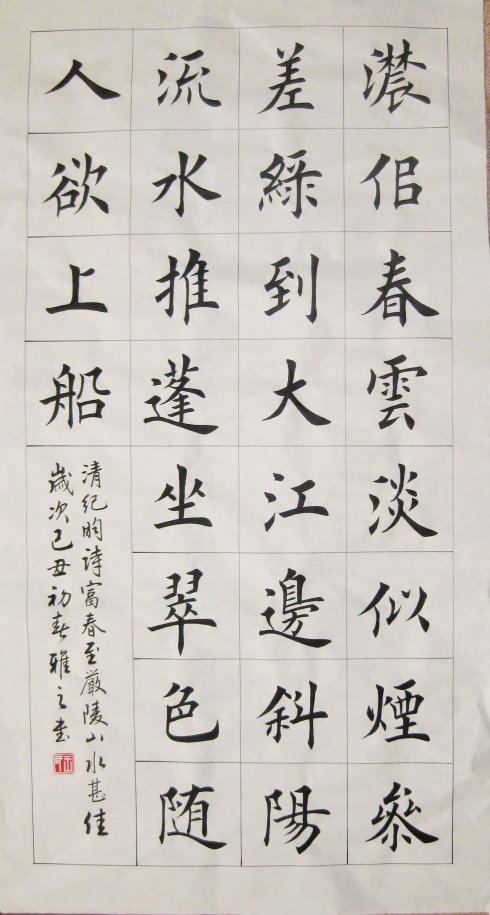 濃佀春雲淡似煙參
差綠到大江邊斜陽
流水推蓬坐翠色随
人欲上船
清紀昀詩富春至嚴陵山水甚佳
歲次己丑初春雅之書